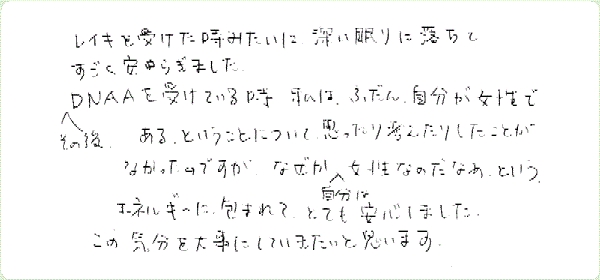 レイキを受けた時みたいに、深い眠りに落ちて
すごく安らぎました。
DNAAを受けている時 私は、ふだん、自分が女性で
その後、
ある、ということについて、思ったり考えたりしたことが
なかったのですが、なぜか女性なのだなあ、という、
自分は
エネルギーに包まれて、とても安心しました。
この気分を大事にしていきたいと思います。